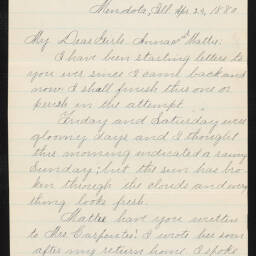 Mendota, Ill. Apr. 24, 1880
My Dear Girls. Anna & Hattie:
I have been starting letters to
you ever since I came back and
now I shall finish this one or
perish in the attempt.
Friday and Saturday were
gloomy days and I thought
this morning indicated a rainy
Sunday; but the sun has bro
ken through the clouds and every
thing looks fresh.
Hattie have you written
to Mrs Carpenter? I wrote her soon
after my return home. I spoke